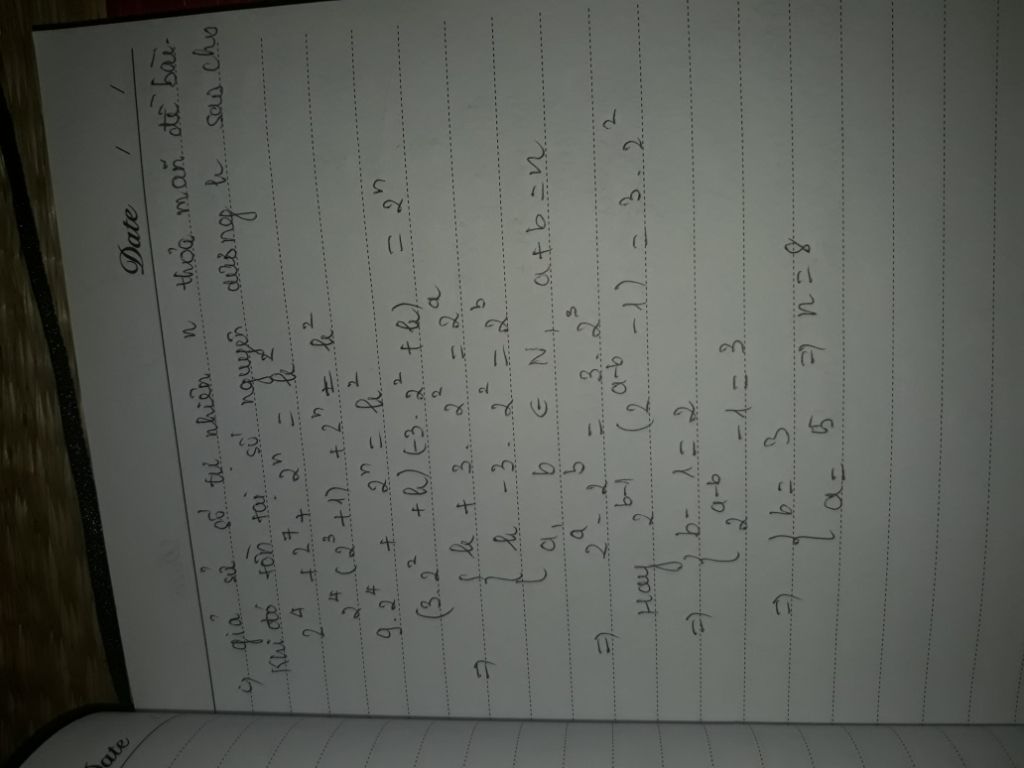 Date / /
9 giả sử số tự nhiên n thỏa mãn đề bài.
Khi đó tồn tại số nguyên dương k sao cho
2⁴ + 2⁷ + 2ⁿ = k²
2⁴ (2³ + 1) + 2ⁿ = k²
9.2⁴ + 2ⁿ = k²
(3.2² + k) (-3.2² + k) = 2ⁿ
=> { k + 3.2² = 2ᵃ
{ k - 3.2² = 2ᵇ
{ a, b ∈ N, a + b = n
=> 2ᵃ - 2ᵇ = 3.2³
Hay 2ᵇ⁻¹ (2ᵃ⁻ᵇ - 1) = 3.2²
=> { b - 1 = 2
{ 2ᵃ⁻ᵇ - 1 = 3
=> { b = 3
{ a = 5 => n = 8
Date